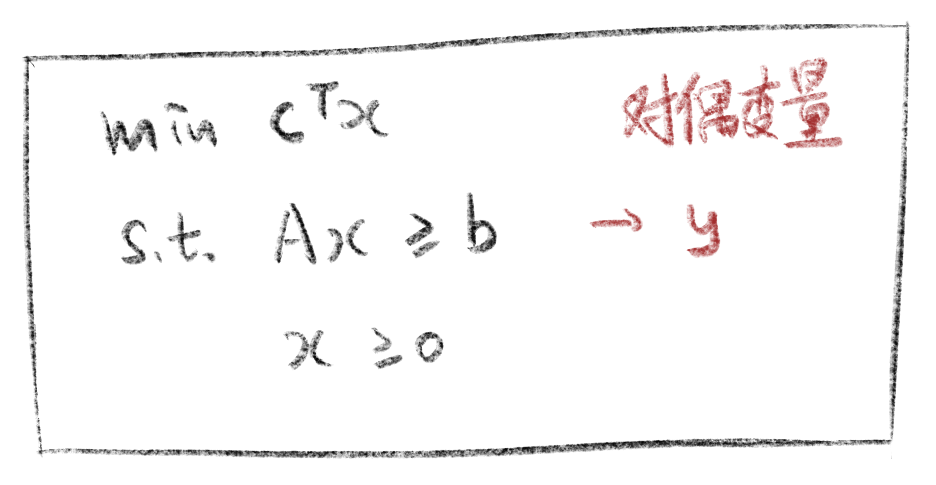 min cᵀx 对偶变量
s.t. Ax ≥ b → y
x ≥ 0